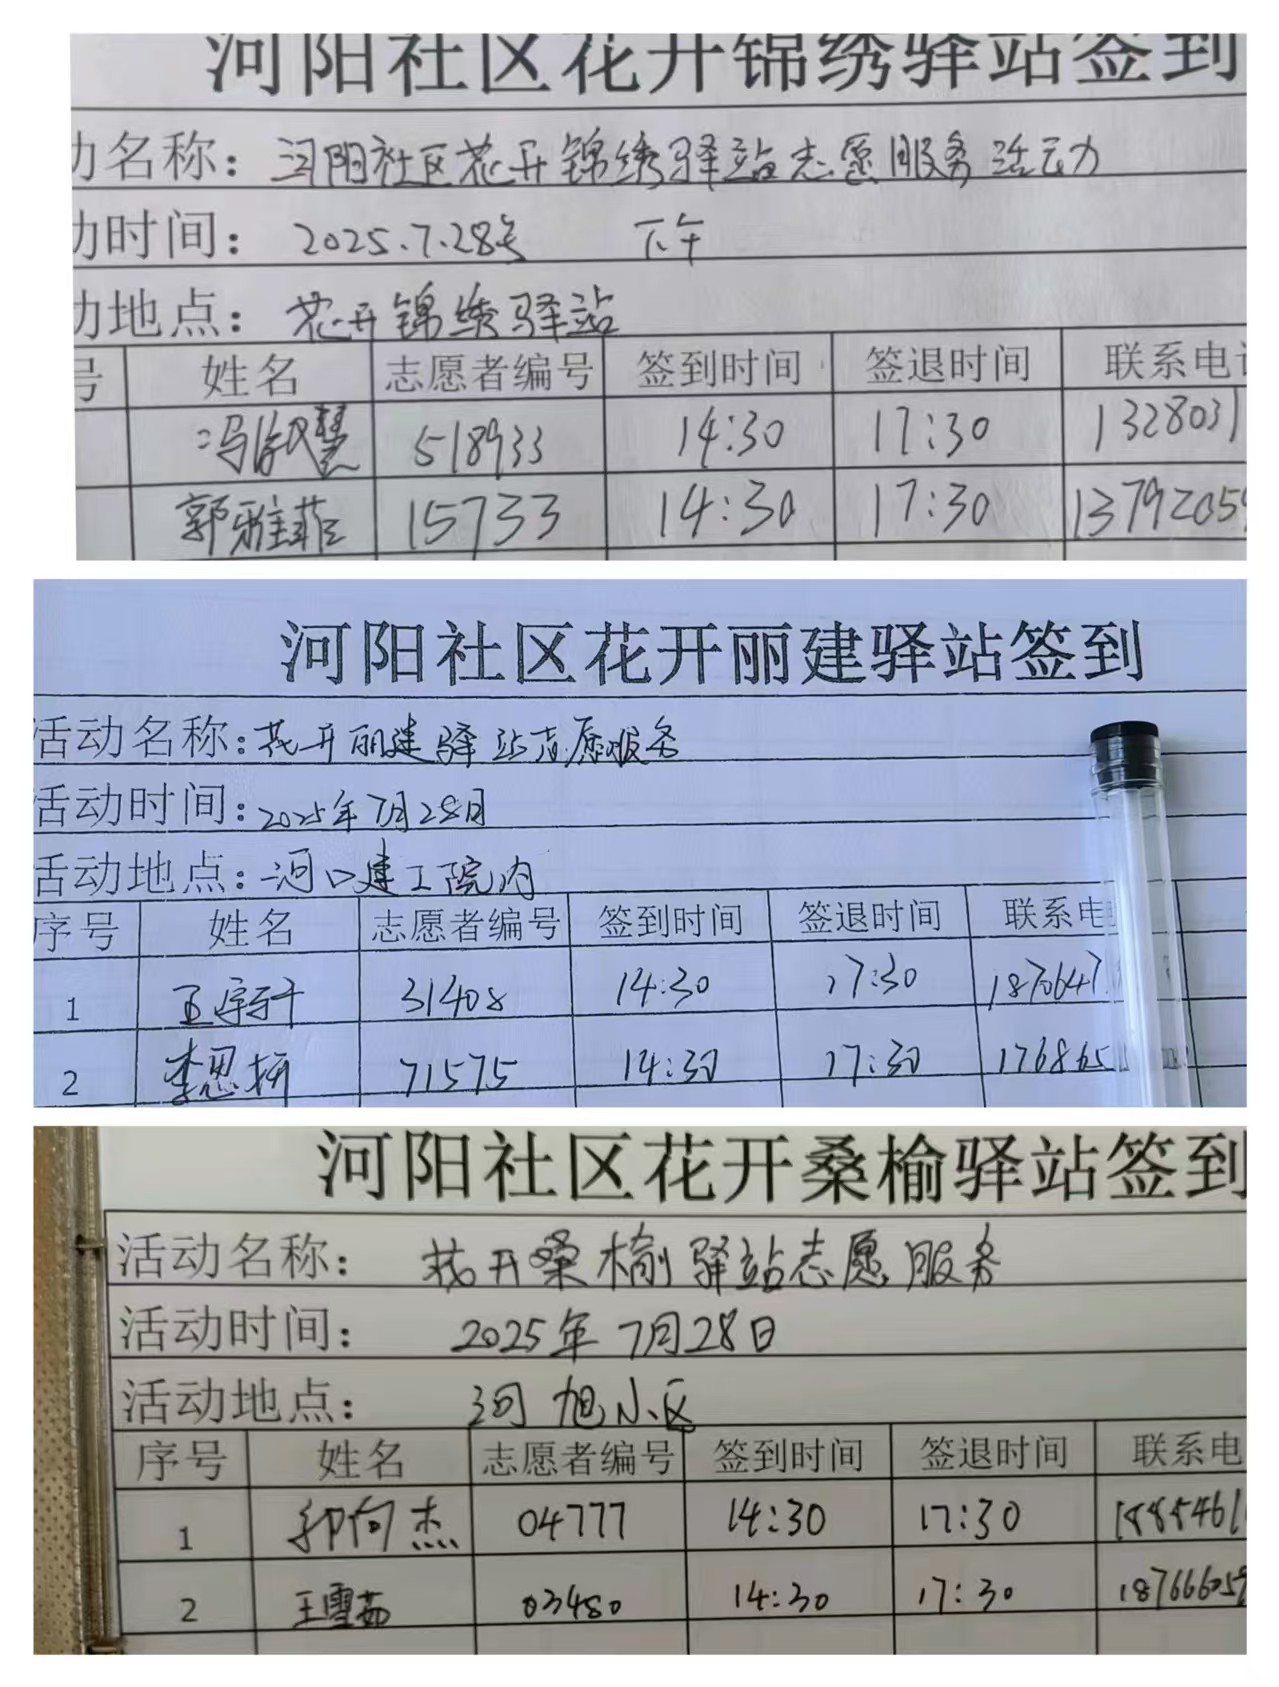 河阳社区花开锦绣驿站签到
动名称：河阳社区花开锦绣驿站志愿服务活动
动时间：2025.7.28号 下午
动地点：花开锦绣驿站
号 姓名 志愿者编号 签到时间 签退时间 联系电话
冯淑慧 518933 14:30 17:30 1328031
郭雅菲 15733 14:30 17:30 13792059
河阳社区花开丽建驿站签到
活动名称：花开丽建驿站志愿服务
活动时间：2025年7月28日
活动地点：河口建工院内
序号 姓名 志愿者编号 签到时间 签退时间 联系电
1 31408 14:30 17:30 1870647
2 李思妍 71575 14:30 17:30 176865
河阳社区花开桑榆驿站签到
活动名称：花开桑榆驿站志愿服务
活动时间：2025年7月28日
活动地点：河旭小区
序号 姓名 志愿者编号 签到时间 签退时间 联系电
1 郭向杰 04777 14:30 17:30 1885461
2 王雪茹 03480 14:30 17:30 187666059